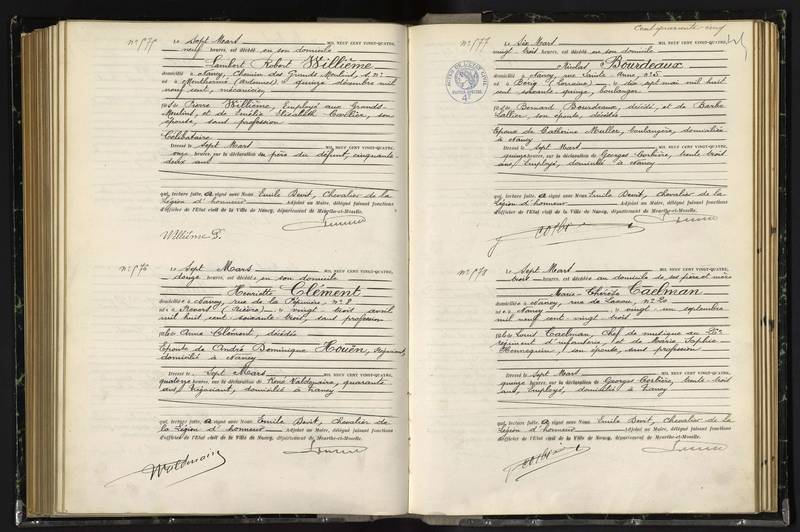 Le Sept Mars MIL NEUF CENT VINGT-QUATRE,
neuf heures, est décédé en son domicile
Lambert Robert Willième
domicilié à Nancy, Chemin des Grands Moulins, s. n°
né à Monthermé (Ardennes) le quinze décembre mil
neuf cent, mécanicien
fils de Pierre Willième, Employé aux Grands-
Moulins, et de Emélie Elisabeth Collier, son
épouse, sans profession
Célibataire
Dressé le Sept Mars MIL NEUF CENT VINGT-QUATRE,
onze heures, sur la déclaration du père du défunt, cinquante-
deux ans
qui, lecture faite, a signé avec Nous Emile Devit, Chevalier de la
Légion d'honneur Adjoint au Maire, délégué faisant fonctions
d'officier de l'Etat civil de la Ville de Nancy, département de Meurthe-et-Moselle.
Willième P.
n° 976 Le Sept Mars MIL NEUF CENT VINGT-QUATRE,
douze heures, est décédée en son domicile
Henriette Clément
domiciliée à Nancy, rue de la Pépinière, n° 8
née à Revert (Nièvre) le vingt trois avril
mil huit cent soixante trois, sans profession
fille de Anne Clément, décédée
Epouse de André Dominique Houën, Négociant,
domicilié à Nancy
Dressé le Sept Mars MIL NEUF CENT VINGT-QUATRE,
quatorze heures, sur la déclaration de René Valdenaire, quarante
ans, Négociant, domicilié à Nancy
qui, lecture faite, a signé avec Nous Emile Devit, Chevalier de
la Légion d'honneur Adjoint au Maire, délégué faisant fonctions
d'officier de l'Etat civil de la Ville de Nancy, département de Meurthe-et-Moselle.
n° 977 Le Six Mars MIL NEUF CENT VINGT-QUATRE,
vingt-trois heures, est décédé en son domicile
Nicolas Bourdeaux
domicilié à Nancy, rue Sainte Anne, n° 5
né à (Lorraine) le dix sept mai mil huit
cent soixante quinze, boulanger
fils de Bernard Bourdeaux, décédé, et de Barbe
Lallier, son épouse, décédée
Epoux de Catherine Muller, boulangère, domiciliée
à Nancy
Dressé le Sept Mars MIL NEUF CENT VINGT-QUATRE,
quinze heures, sur la déclaration de Georges Corbière, trente trois
ans, Employé, domicilié à Nancy
qui, lecture faite, a signé avec Nous Emile Devit, Chevalier de la
Légion d'honneur Adjoint au Maire, délégué faisant fonctions
d'officier de l'Etat civil de la Ville de Nancy, département de Meurthe-et-Moselle.
n° 978 Le Sept Mars MIL NEUF CENT VINGT-QUATRE,
trois heures, est décédée au domicile de ses père et mère
Marie Thérèse Caelman
domiciliée à Nancy, rue de n° 20
née à Nancy le vingt un septembre
mil neuf cent vingt trois
fille de Louis Caelman Chef de musique au
régiment d'infanterie, et de Marie Sophie
Hennequin, son épouse, sans profession
Dressé le Sept Mars MIL NEUF CENT VINGT-QUATRE,
quinze heures, sur la déclaration de Georges Corbière, trente trois
ans, Employé, domicilié à Nancy
qui, lecture faite, a signé avec Nous Emile Devit, Chevalier de la
Légion d'honneur Adjoint au Maire, délégué faisant fonctions
d'officier de l'Etat civil de la Ville de Nancy, département de Meurthe-et-Moselle.